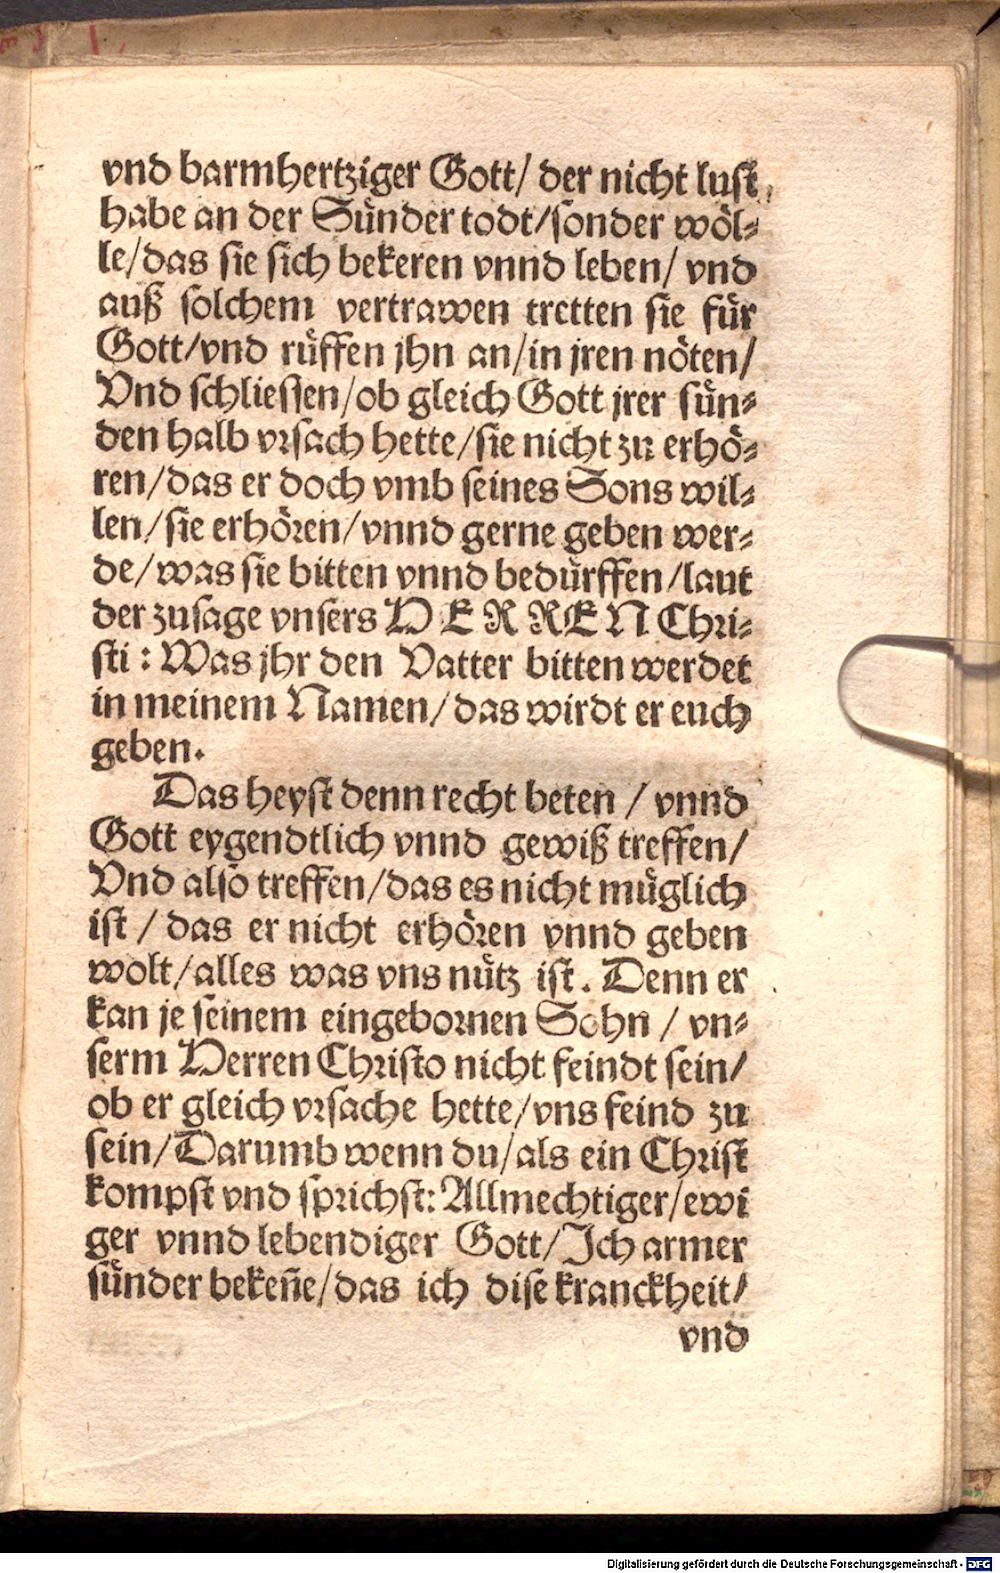 vnd barmhertziger Gott/ der nicht lust
habe an der Sünder todt/sonder wöl-
le/das sie sich bekeren vnnd leben/ vnd
auß solchem vertrawen tretten sie für
Gott/vnd rüffen jhn an/in jren nöten/
Vnd schliessen/ob gleich Gott jrer sün-
den halb vrsach hette/sie nicht zu erhö-
ren/das er doch vmb seines Sons wil-
len/sie erhören/vnnd gerne geben wer-
de/was sie bitten vnnd bedürffen/laut
der zusage vnsers HERREN Chri-
sti: Was jhr den Vatter bitten werdet
in meinem Namen/das wirdt er euch
geben.
Das heyst denn recht beten / vnnd
Gott eygendtlich vnnd gewiß treffen/
Vnd also treffen/das es nicht müglich
ist / das er nicht erhören vnnd geben
wolt/alles was vns nütz ist. Denn er
kan je seinem eingebornen Sohn / vn-
serm Herren Christo nicht feindt sein/
ob er gleich vrsache hette/vns feind zu
sein/Darumb wenn du/als ein Christ
kompst vnd sprichst: Allmechtiger/ewi
ger vnnd lebendiger Gott/Ich armer
sünder bekeñe/das ich dise kranckheit/
vnd
Digitalisierung gefördert durch die Deutsche Forschungsgemeinschaft - DFG